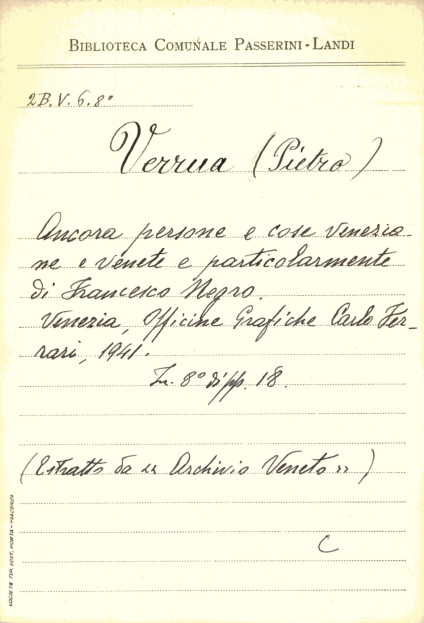 BIBLIOTECA COMUNALE PASSERINI-LANDI
2B.V.6.8°
Verrua (Pietro)
Ancora persone e cose venezia-
ne e venete e particolarmente
di Francesco Negro.
Venezia, Officine Grafiche Carlo Fer-
rari, 1941.
In 8° di pp. 18.
(Estratto da "Archivio Veneto")
C